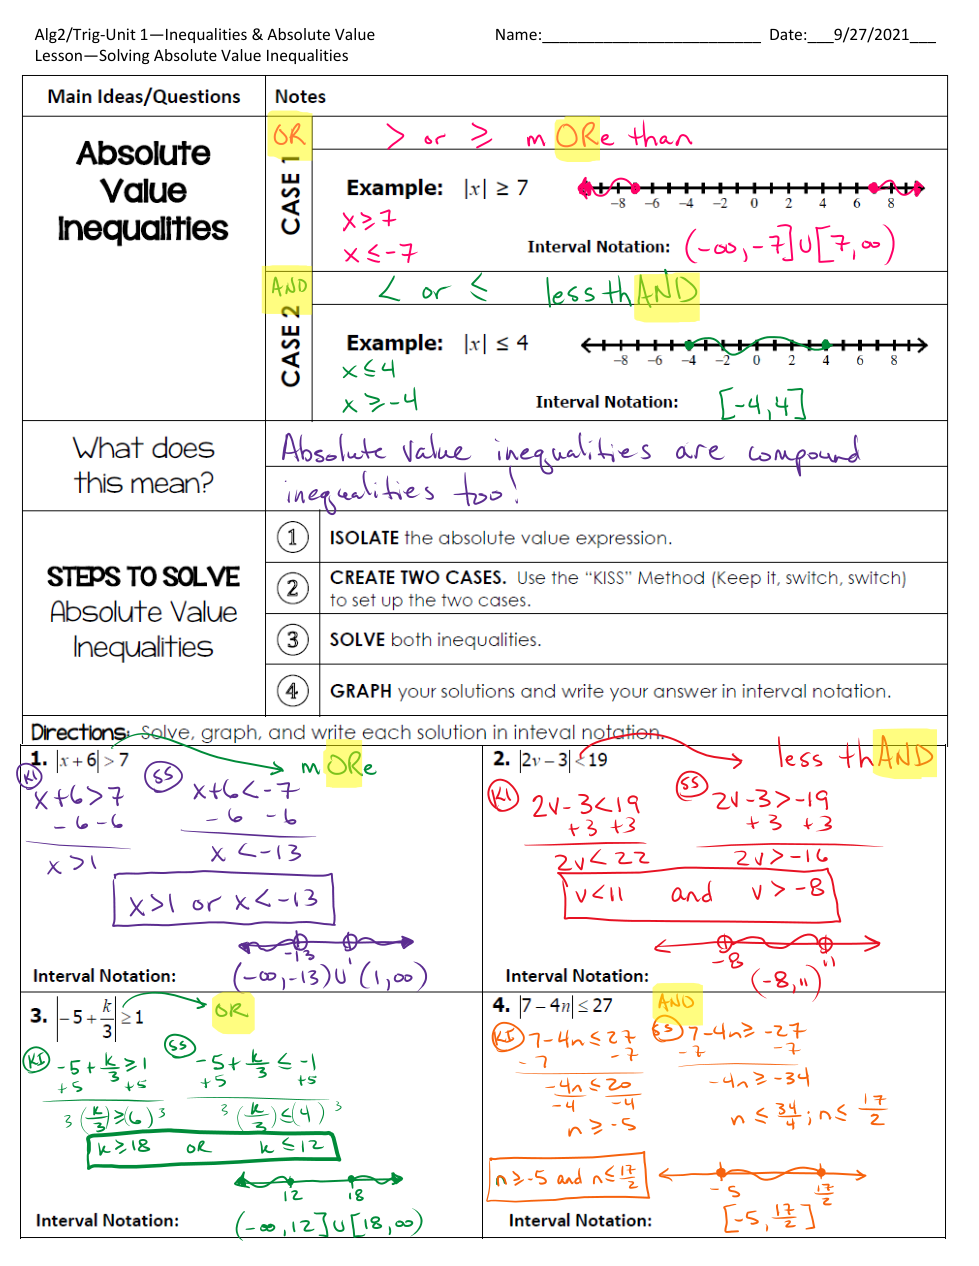 Alg2/Trig-Unit 1—Inequalities & Absolute Value Name:_________________________ Date:___9/27/2021___
Lesson—Solving Absolute Value Inequalities
Main Ideas/Questions Notes
Absolute
Value
Inequalities
OR
CASE 1
> or ≥ mORe than
Example: |x| ≥ 7
-8 -6 -4 -2 0 2 4 6 8
x ≥ 7
x ≤ -7
Interval Notation: (-∞, -7] ∪ [7, ∞)
AND
CASE 2
< or ≤ less thAND
Example: |x| ≤ 4
-8 -6 -4 -2 0 2 4 6 8
x ≤ 4
x ≥ -4
Interval Notation: [-4, 4]
What does
this mean?
Absolute value inequalities are compound
inequalities too!
STEPS TO SOLVE
Absolute Value
Inequalities
1 ISOLATE the absolute value expression.
2 CREATE TWO CASES. Use the “KISS” Method (Keep it, switch, switch)
to set up the two cases.
3 SOLVE both inequalities.
4 GRAPH your solutions and write your answer in interval notation.
Directions: Solve, graph, and write each solution in inteval notation.
1. |x + 6| > 7
mORe
KI x+6 > 7 SS x+6 < -7
-6 -6 -6 -6
x > 1 x < -13
x > 1 or x < -13
-13 1
Interval Notation: (-∞, -13) ∪ (1, ∞)
2. |2v − 3| < 19
less thAND
KI 2v-3 < 19 SS 2v-3 > -19
+3 +3 +3 +3
2v < 22 2v > -16
v < 11 and v > -8
-8 11
Interval Notation: (-8, 11)
3. |-5 + k/3| ≥ 1
OR
KI -5 + k/3 ≥ 1 SS -5 + k/3 ≤ -1
+5 +5 +5 +5
3 (k/3) ≥ (6) 3 3 (k/3) ≤ (4) 3
k ≥ 18 OR k ≤ 12
12 18
Interval Notation: (-∞, 12] ∪ [18, ∞)
4. |7 − 4n| ≤ 27
AND
KI 7-4n ≤ 27 SS 7-4n ≥ -27
-7 -7 -7 -7
-4n ≤ 20 -4n ≥ -34
-4 -4
n ≥ -5 n ≤ 34/4 ; n ≤ 17/2
n ≥ -5 and n ≤ 17/2
-5 17/2
Interval Notation: [-5, 17/2]